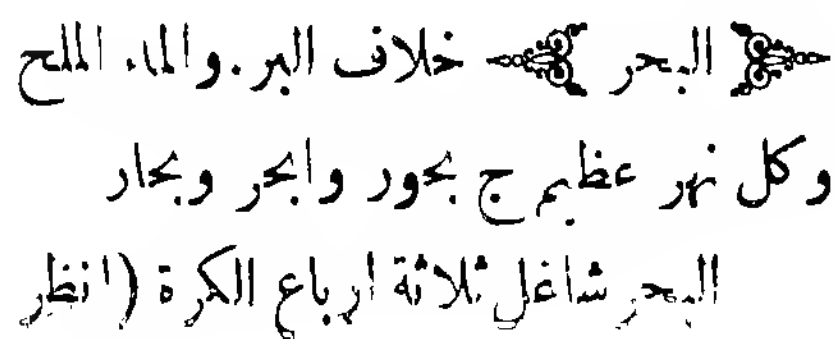 ﴿ البحر ﴾ خلاف البر. والماء الملح
وكل نهر عظيم ج بحور وابحر وبحار
البحر شاغل ثلاثة ارباع الكرة (انظر